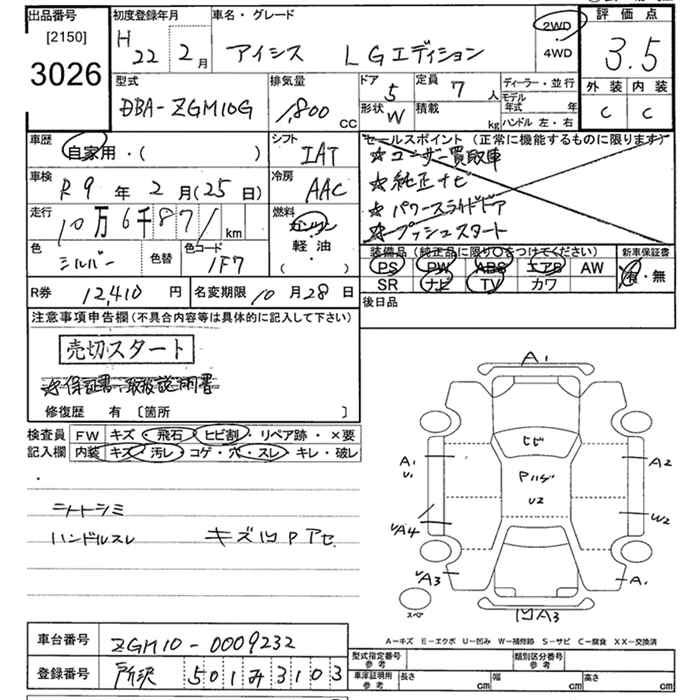 出品番号 [2150] 3026
初度登録年月 H 22年 2月
車名・グレード アイシス LGエディション
2WD ・ 4WD
評価点 3.5
外装 C 内装 C
型式 DBA-ZGM10G
排気量 1,800 CC
ドア 5 定員 7人
形状 W 積載 kg
ディーラー・並行
モデル年式 年
ハンドル 左・右
車歴 自家用・( )
シフト IAT
車検 R9年 2月(25日)
冷房 AAC
走行 10万6千871km
燃料 ガソリン 軽油 ・( )
色 シルバー 色替 色コード 1F7
セールスポイント (正常に機能するものに限ります)
☆ユーザー買取車
☆純正ナビ
☆パワースライドドア
☆プッシュスタート
装備品(純正品に限り○をつけてください) 新車保証書
PS PW ABS エアB AW 有・無
SR ナビ TV カワ
R券 12,410円 名変期限 10月28日
後日品
注意事項申告欄(不具合内容等は具体的に記入して下さい)
売切スタート
☆保証書・取扱説明書
修復歴 有 [箇所 ]
検査員 FW キズ・飛石・ヒビ割・リペア跡・×要
記入欄 内装 キズ・汚レ・コゲ・穴・スレ・キレ・破レ
シートシミ
ハンドルスレ キズ凹Pアセ
A1
ヒビ
A1 U1 Pハゲ U2 A2
UA4 W2
UA3 A1
スペア 凹A3
A-キズ E-エクボ U-凹み W-補修跡 S-サビ C-腐食 XX-交換済
車台番号 ZGM10-0009232
登録番号 所沢 501み3103
型式指定番号 参考 類別区分番号 参考
車庫証明用 参考 長さ cm 幅 cm 高さ cm